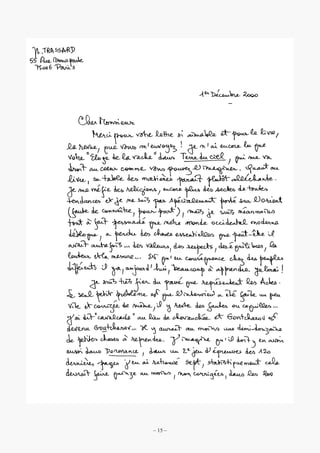 J.L. TRASSARD
55 Rue Bonaparte
75006 Paris
1er Décembre 2000
Cher Monsieur
Merci pour votre lettre si aimable et pour le livre,
la revue, que vous m'envoyez ! Je n'ai encore lu que
votre "Éloge de la vache" dans Terre du ciel, qui me va
droit au cœur comme vous pouvez l'imaginer. Quant au
livre, sa table des matières paraît plutôt alléchante.
Je me méfie des religions, encore plus des sectes de toutes
tendances et je ne suis pas spécialement porté sur l'Orient
(faute de connaître, pour part), mais je suis néanmoins
tout à fait persuadé que notre monde occidental moderne
déglingue, a perdu des choses essentielles que peut-être il
avait autrefois — des valeurs, des respects, des équilibres, la
lenteur et la mesure... Et qu'en conséquence chez des peuples
différents il y a, aujourd'hui, beaucoup à apprendre. Je lirai !
Je suis très fier du pavé que représentent les Actes.
Le seul petit problème est que l'interview a été faite un peu
vite et corrigée de même, il y reste des fautes ou coquilles —
j'ai dit "cavalcade" au lieu de chevauchée et Gontcharov est
devenu Gogtcharov — Il y aurait au moins une demi-douzaine
de petites choses à reprendre. J'imagine qu'il doit y en avoir
aussi dans Dormance, dans un 2e jeu d'épreuves des 120
dernières pages j'en ai retrouvé sept, statistiquement cela
devrait faire quinze au moins, non corrigées, dans les 200
- 15 -